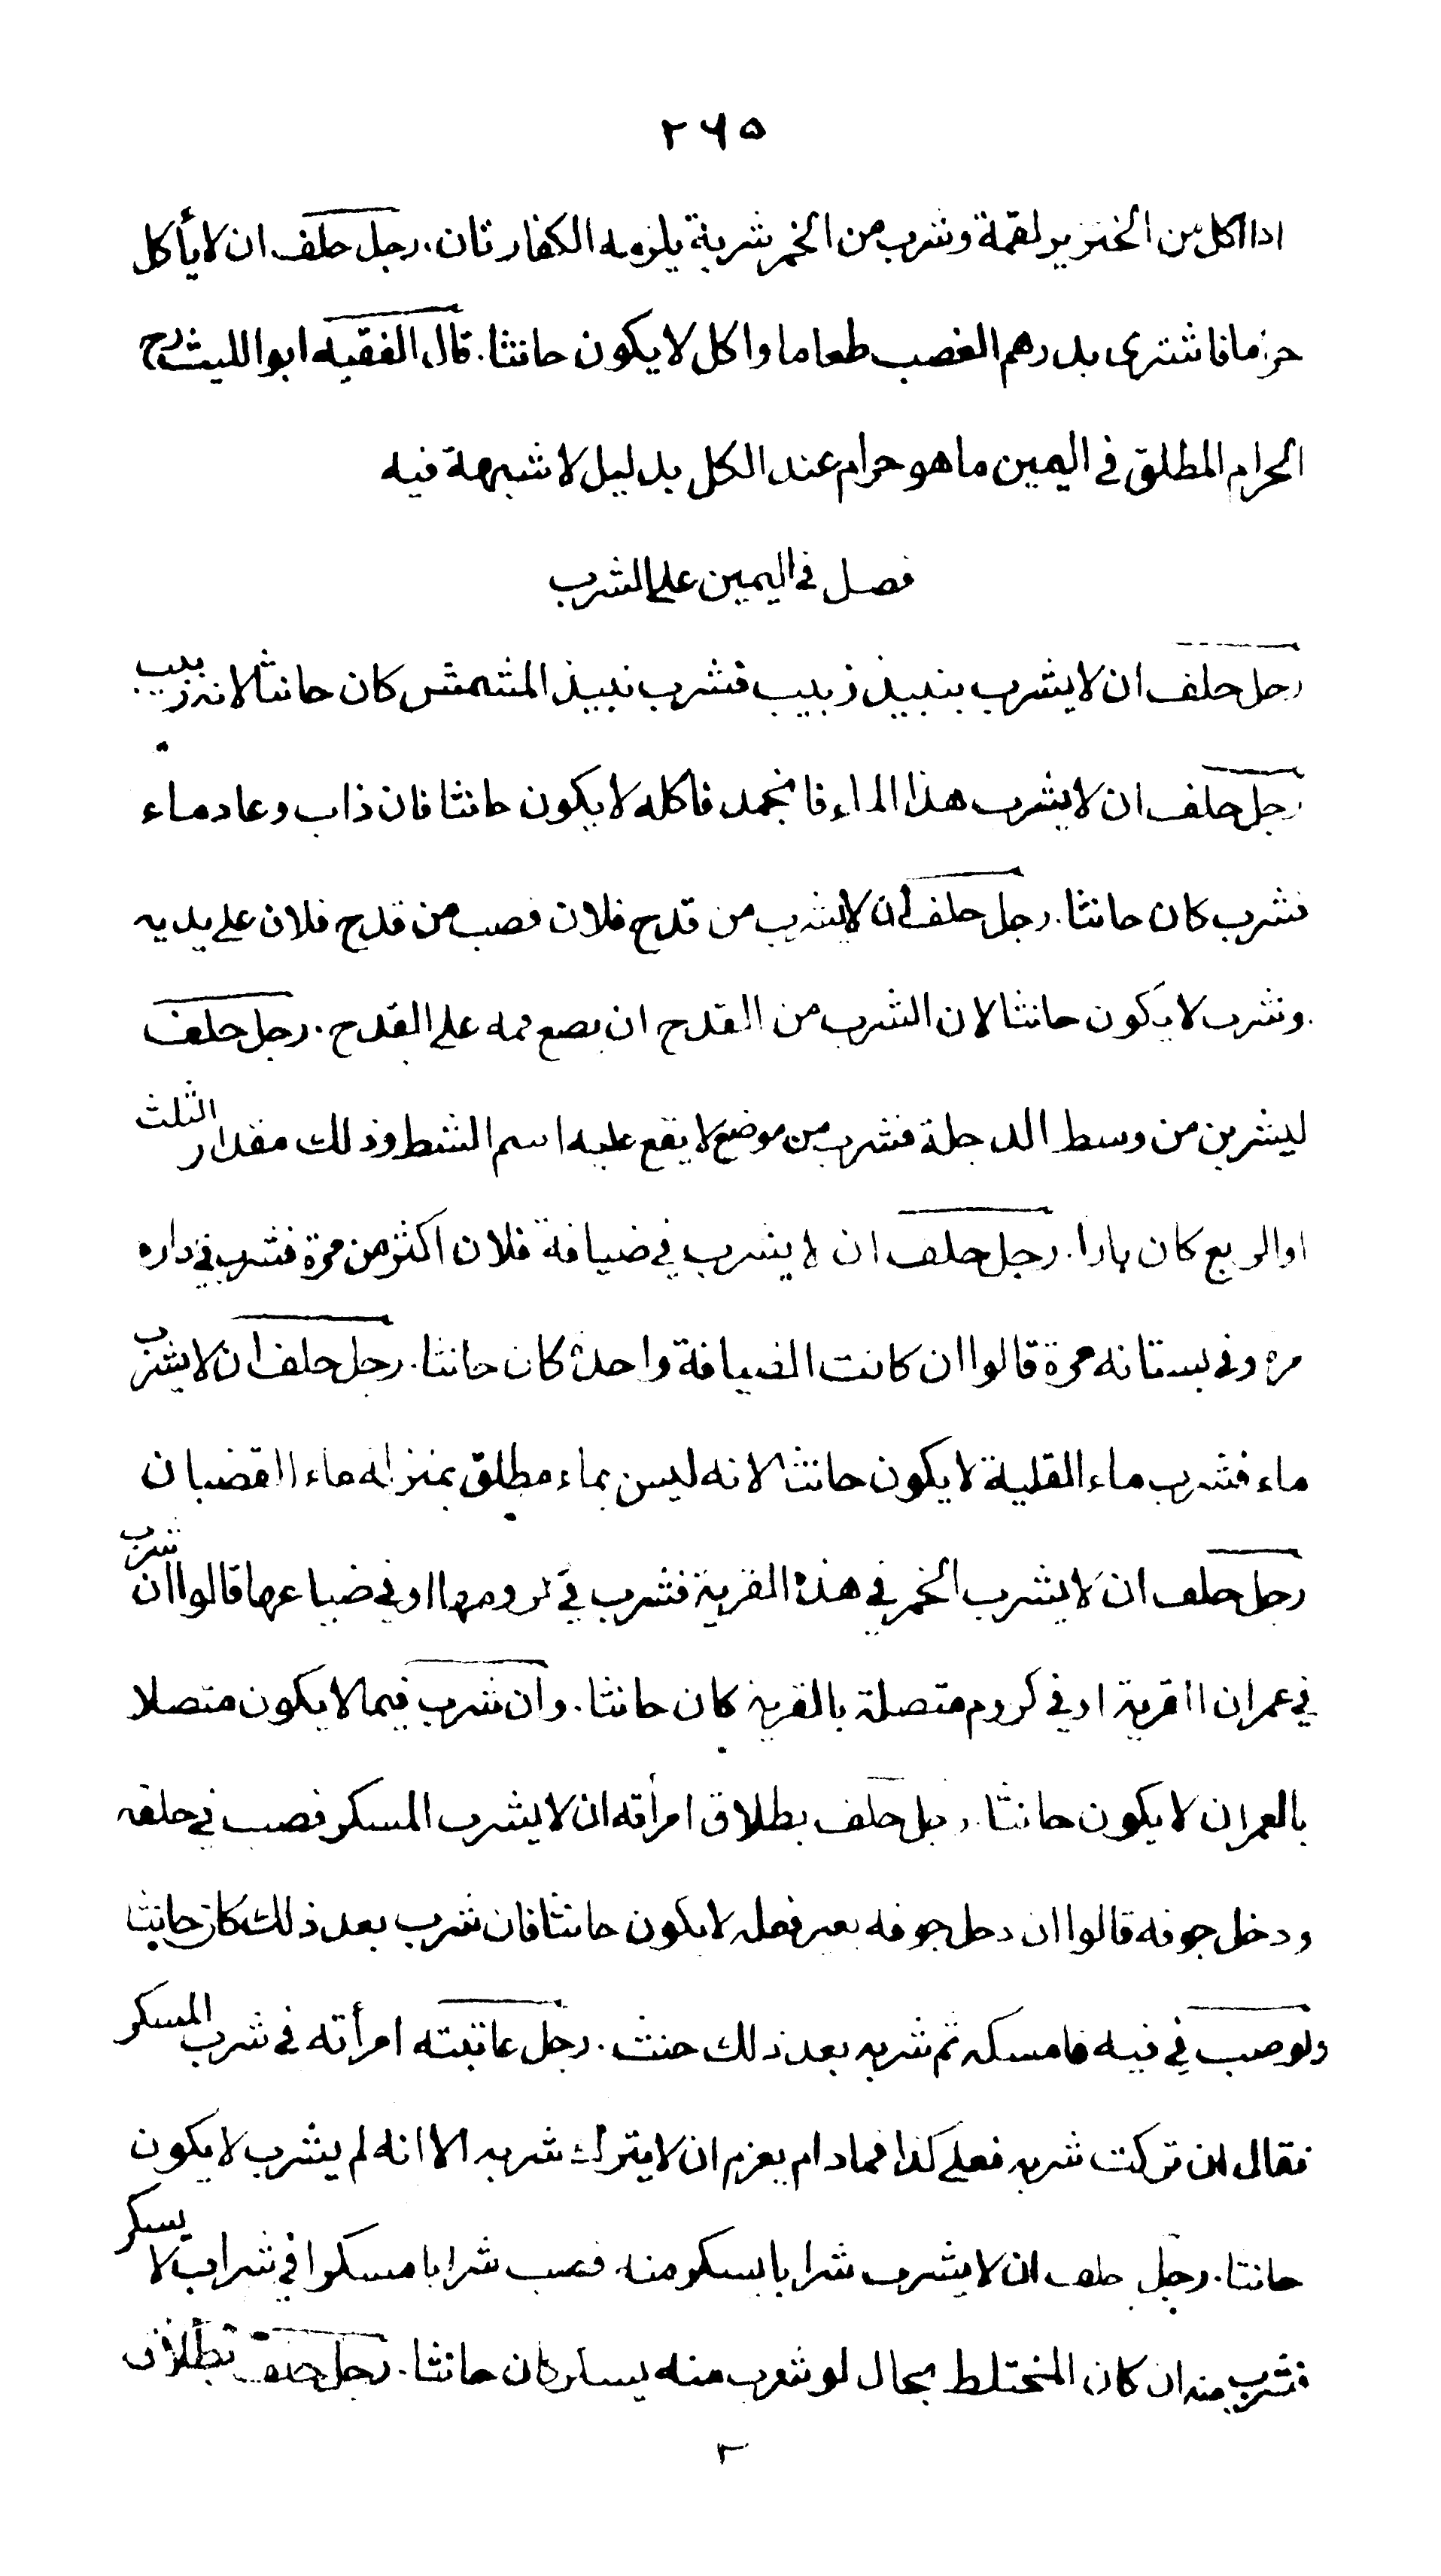 ٢٦٥
اذا اكل من الخنزير لقمة وشرب من الخمر شربة يلزمه الكفارتان. رجل حلف ان لا يأكل
حراما فاشترى بدرهم الغصب طعاما واكل لا يكون حانثا. قال الفقيه ابو الليث رح
الحرام المطلق في اليمين ما هو حرام عند الكل بدليل لا شبهة فيه
فصل في اليمين على الشرب
رجل حلف ان لا يشرب بنبيذ زبيب فشرب نبيذ المشمش كان حانثا لانه زبيب
رجل حلف ان لا يشرب هذا الماء فانجمد فاكله لا يكون حانثا فان ذاب وعاد ماء
فشرب كان حانثا. رجل حلف ان لا يشرب من قدح فلان فصب من قدح فلان على يديه
وشرب لا يكون حانثا لان الشرب من القدح ان يضع فمه على القدح. رجل حلف
ليشربن من وسط الدجلة فشرب من موضع لا يقع عليه اسم الشط وذلك مقدار الثلث
او الربع كان بارا. رجل حلف ان لا يشرب في ضيافة فلان اكثر من مرة فشرب في داره
مرة وفي بستانه مرة قالوا ان كانت الضيافة واحدة كان حانثا. رجل حلف ان لا يشرب
ماء فشرب ماء القلية لا يكون حانثا لانه ليس بماء مطلق بمنزلة ماء القضبان
رجل حلف ان لا يشرب الخمر في هذه القرية فشرب في كرومها او في ضياعها قالوا ان شرب
في عمران القرية او في كروم متصلة بالقرية كان حانثا. وان شرب فيما لا يكون متصلا
بالعمران لا يكون حانثا. رجل حلف بطلاق امرأته ان لا يشرب المسكر فصب في حلقه
ودخل جوفه قالوا ان دخل جوفه بغير فعله لا يكون حانثا فان شرب بعد ذلك كان حانثا
ولو صب في فيه فامسكه ثم شربه بعد ذلك حنث. رجل عاتبته امرأته في شرب المسكر
فقال ان تركت شربه فعلى كذا فما دام يعزم ان لا يترك شربه الا انه لم يشرب لا يكون
حانثا. رجل حلف ان لا يشرب شرابا يسكر منه فصب شرابا مسكرا في شراب لا يسكر
فشرب منه ان كان المختلط بحال لو شرب منه يسكر كان حانثا. رجل حلف بطلاق